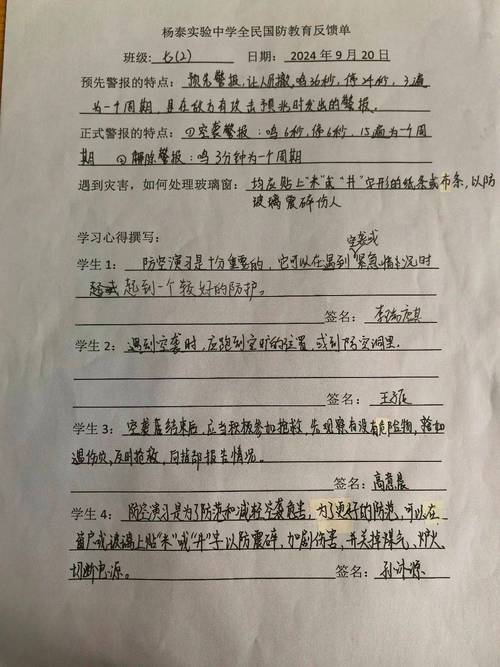 杨泰实验中学全民国防教育反馈单
班级: 七(2) 日期: 2024年9月20日
预先警报的特点: 预先警报,让人员撤,鸣36秒,停24秒,3遍
为一个周期,是在敌方有攻击预兆时发出的警报.
正式警报的特点:①空袭警报:鸣6秒,停6秒,15遍为一个周
期 ②解除警报:鸣3分钟为一个周期
遇到灾害,如何处理玻璃窗: 均应贴上"米"或"井"字形的纸条或布条,以防
玻璃震碎伤人
学习心得撰写:
空袭或
学生1: 防空演习是十分重要的,它可以在遇到紧急情况时
起到一个较好的防护。
签名: 李
学生2: 遇到空袭时,应跑到空旷的位置,或到防空洞里.
签名: 王
学生3: 空袭结束后,应当积极参加抢救,先观察有没有危险物,
遇伤员,及时抢救,向指部报告情况。
签名: 高嘉晨
学生4: 防空演习是为了防范和减轻空袭危害,为了更好的防范,可以在
窗户或玻璃上贴"米"或"井"字以防震碎,加剧伤害,并关掉煤气、炉火、
切断电源。 签名: 孙